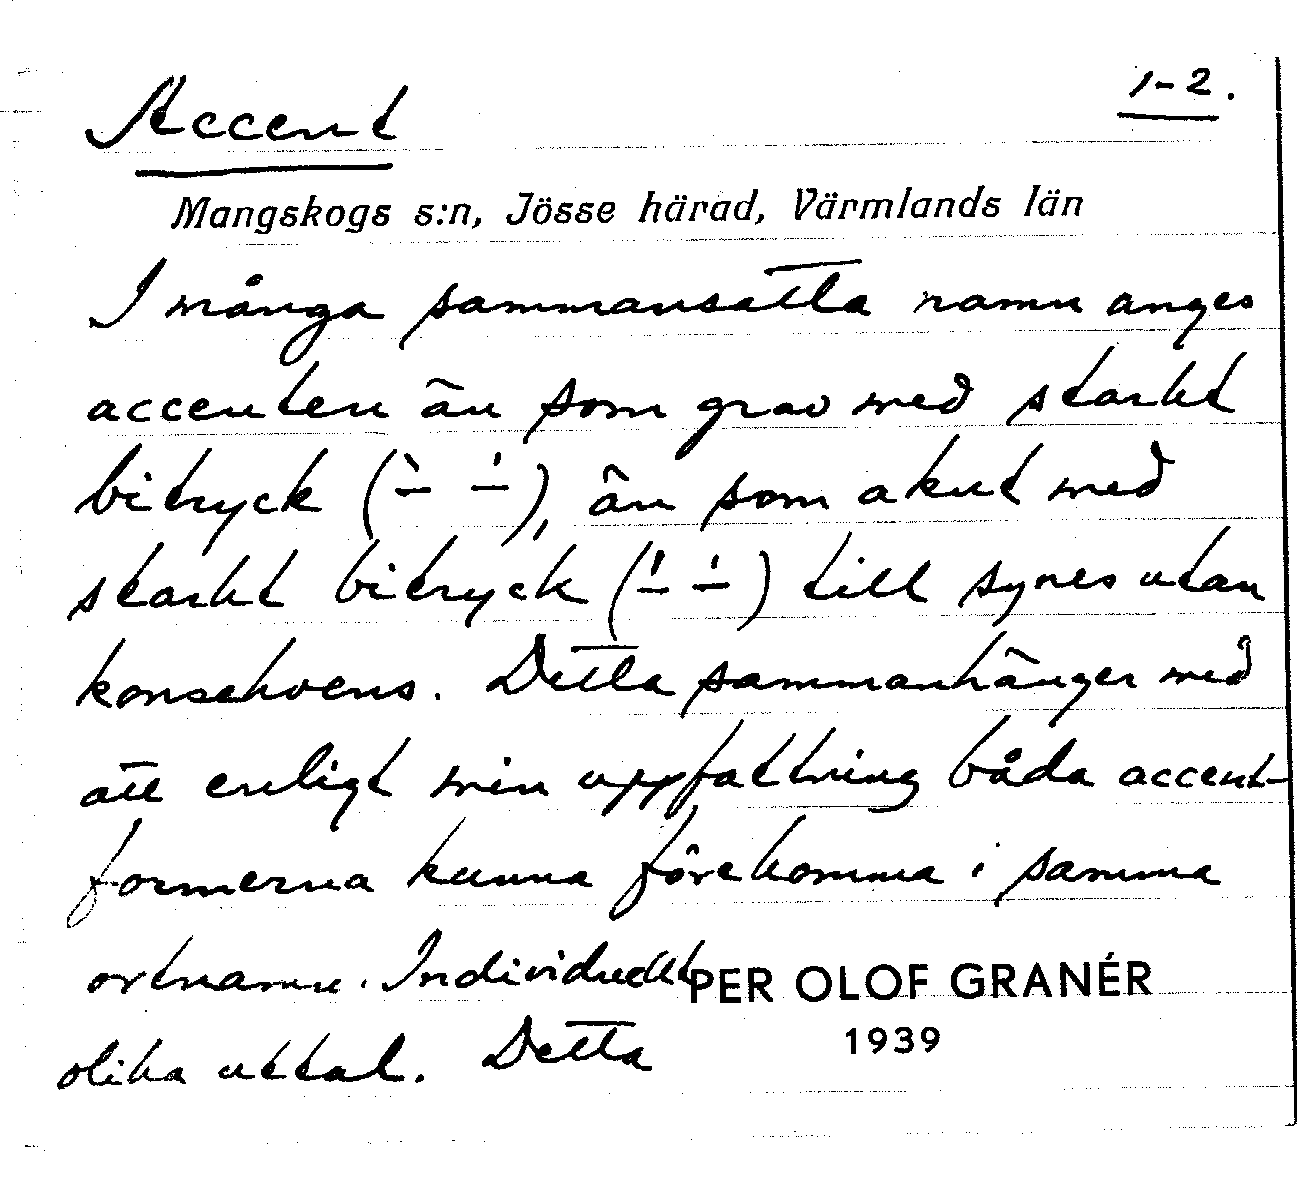 1-2.
Accent
Mangskogs s:n, Jösse härad, Värmlands län
I många sammansatta namn anges
accenten än som grav med starkt
bitryck (̀– ́–), än som akut med
starkt bitryck (́– ́–) till synes utan
konsekvens. Detta sammanhänger med
att enligt min uppfattning båda accent-
formerna kunna förekomma i samma
ortnamn. Individuellt
olika uttal. Detta
PER OLOF GRANÉR
1939